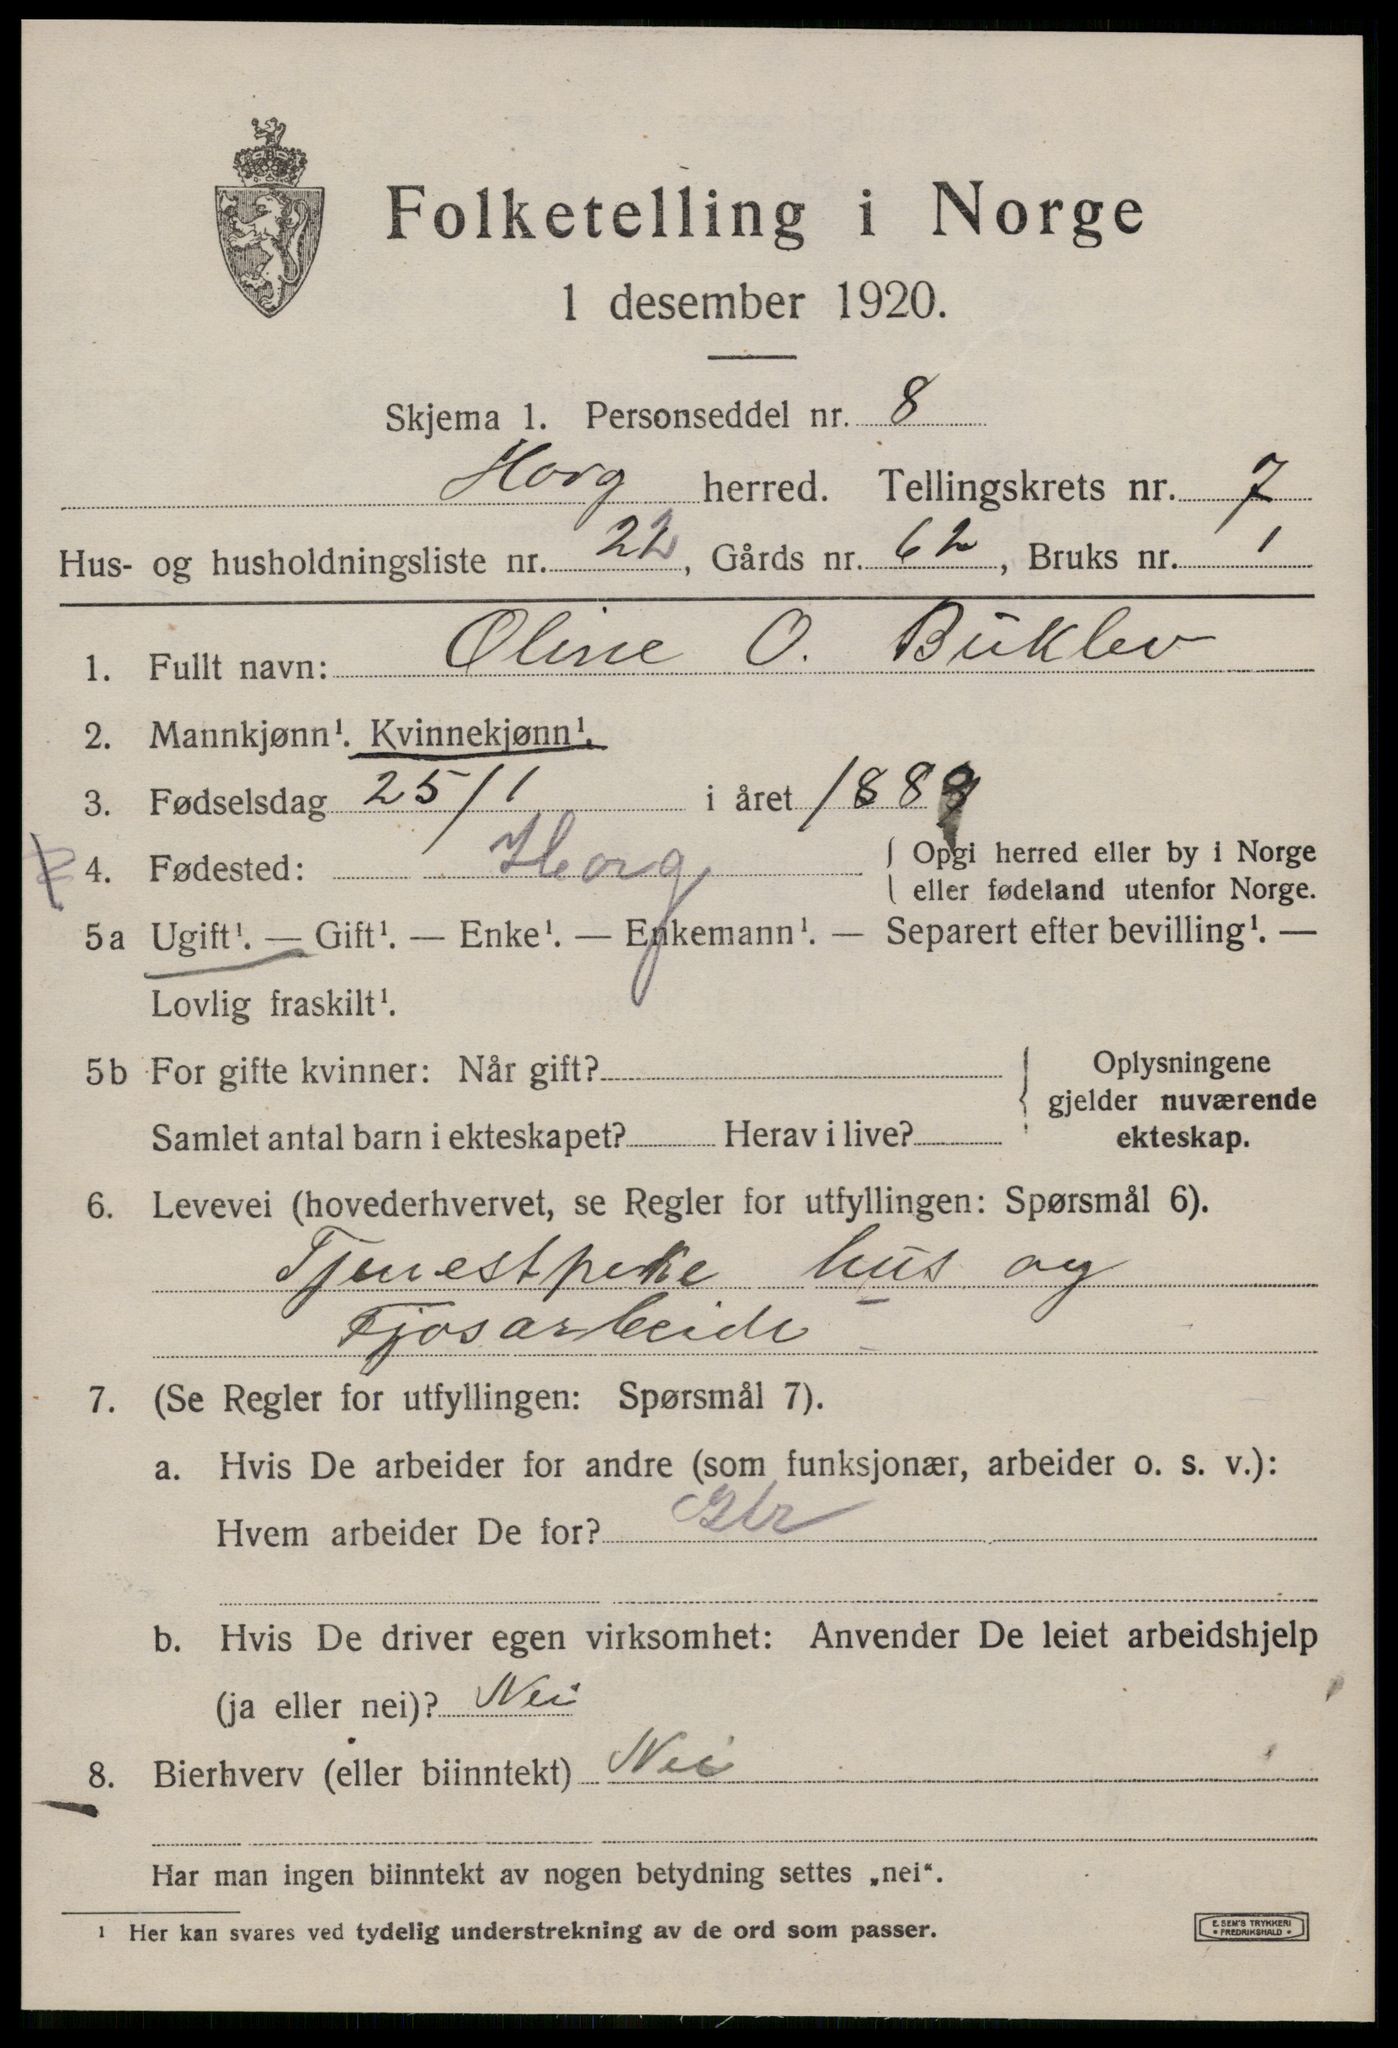 Folketelling i Norge
1 desember 1920.
Skjema 1. Personseddel nr. 8
Horg herred. Tellingskrets nr. 7
Hus- og husholdningsliste nr. 22, Gårds nr. 62, Bruks nr. 1
1. Fullt navn: Oline O. Buklev
2. Mannkjønn¹. Kvinnekjønn¹.
3. Fødselsdag 25/1 i året 1889
4. Fødested: Horg { Opgi herred eller by i Norge
eller fødeland utenfor Norge.
5a Ugift¹. — Gift¹. — Enke¹. — Enkemann¹. — Separert efter bevilling¹. —
Lovlig fraskilt¹.
5b For gifte kvinner: Når gift?
Samlet antal barn i ekteskapet? Herav i live?
{ Oplysningene
gjelder nuværende
ekteskap.
6. Levevei (hovederhvervet, se Regler for utfyllingen: Spørsmål 6).
Tjenestpike hus og
Fjosarbeide
7. (Se Regler for utfyllingen: Spørsmål 7).
a. Hvis De arbeider for andre (som funksjonær, arbeider o. s. v.):
Hvem arbeider De for?
b. Hvis De driver egen virksomhet: Anvender De leiet arbeidshjelp
(ja eller nei)? Nei
8. Bierhverv (eller biinntekt) Nei
Har man ingen biinntekt av nogen betydning settes „nei“.
¹ Her kan svares ved tydelig understrekning av de ord som passer.
E. SEM'S TRYKKERI
• FREDRIKSHALD •